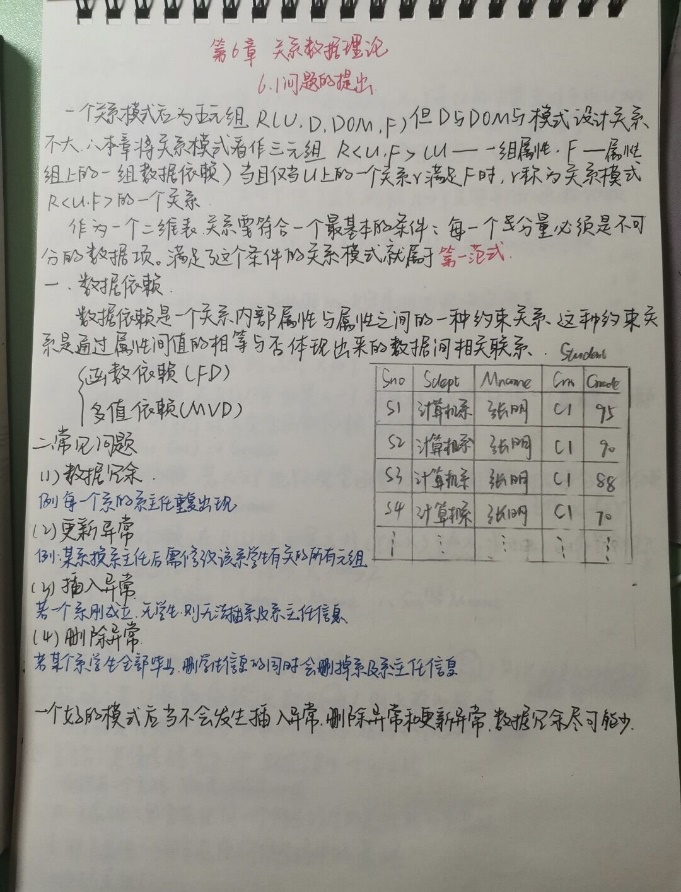 第6章 关系数据理论
6.1问题的提出
一个关系模式应为五元组 R(U,D,DOM,F) 但D与DOM与模式设计关系
不大,∴本章将关系模式看作三元组 R<U,F> (U——一组属性,F—属性
组上的一组数据依赖) 当且仅当U上的一个关系r满足F时,r称为关系模式
R<U,F>的一个关系.
作为一个二维表,关系需符合一个最基本的条件:每一个分量必须是不可
分的数据项。满足了这个条件的关系模式就属于第一范式.
一.数据依赖.
数据依赖是一个关系内部属性与属性之间的一种约束关系.这种约束关
系是通过属性间值的相等与否体现出来的数据间相关联系.
函数依赖(FD)
多值依赖(MVD)
Student
Sno Sdept Mname Cno Grade
S1 计算机系 张明 C1 95
S2 计算机系 张明 C1 90
S3 计算机系 张明 C1 88
S4 计算机系 张明 C1 70
⋮ ⋮ ⋮ ⋮ ⋮
二.常见问题
(1)数据冗余.
例:每一个系的系主任重复出现
(2)更新异常
例:某系换系主任后需修改该系学生有关的所有元组
(3)插入异常
若一个系刚成立,无学生,则无法插系及系主任信息
(4)删除异常
若某个系学生全部毕业,删学生信息的同时会删掉系及系主任信息
一个好的模式应当不会发生插入异常,删除异常和更新异常,数据冗余尽可能少.